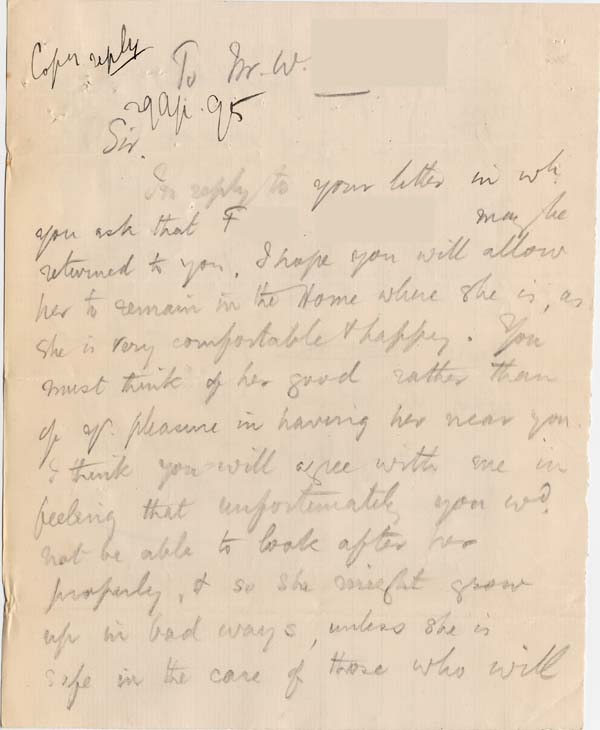 Copy reply
To Mr. W.
29 Ap. 95
Sir.
In reply to your letter in wh.
you ask that F may be
returned to you, I hope you will allow
her to remain in the Home where she is, as
she is very comfortable & happy. You
must think of her good rather than
of yr. pleasure in having her near you.
I think you will agree with me in
feeling that unfortunately you wd.
not be able to look after her
properly, & so she might grow
up in bad ways, unless she is
safe in the care of those who will